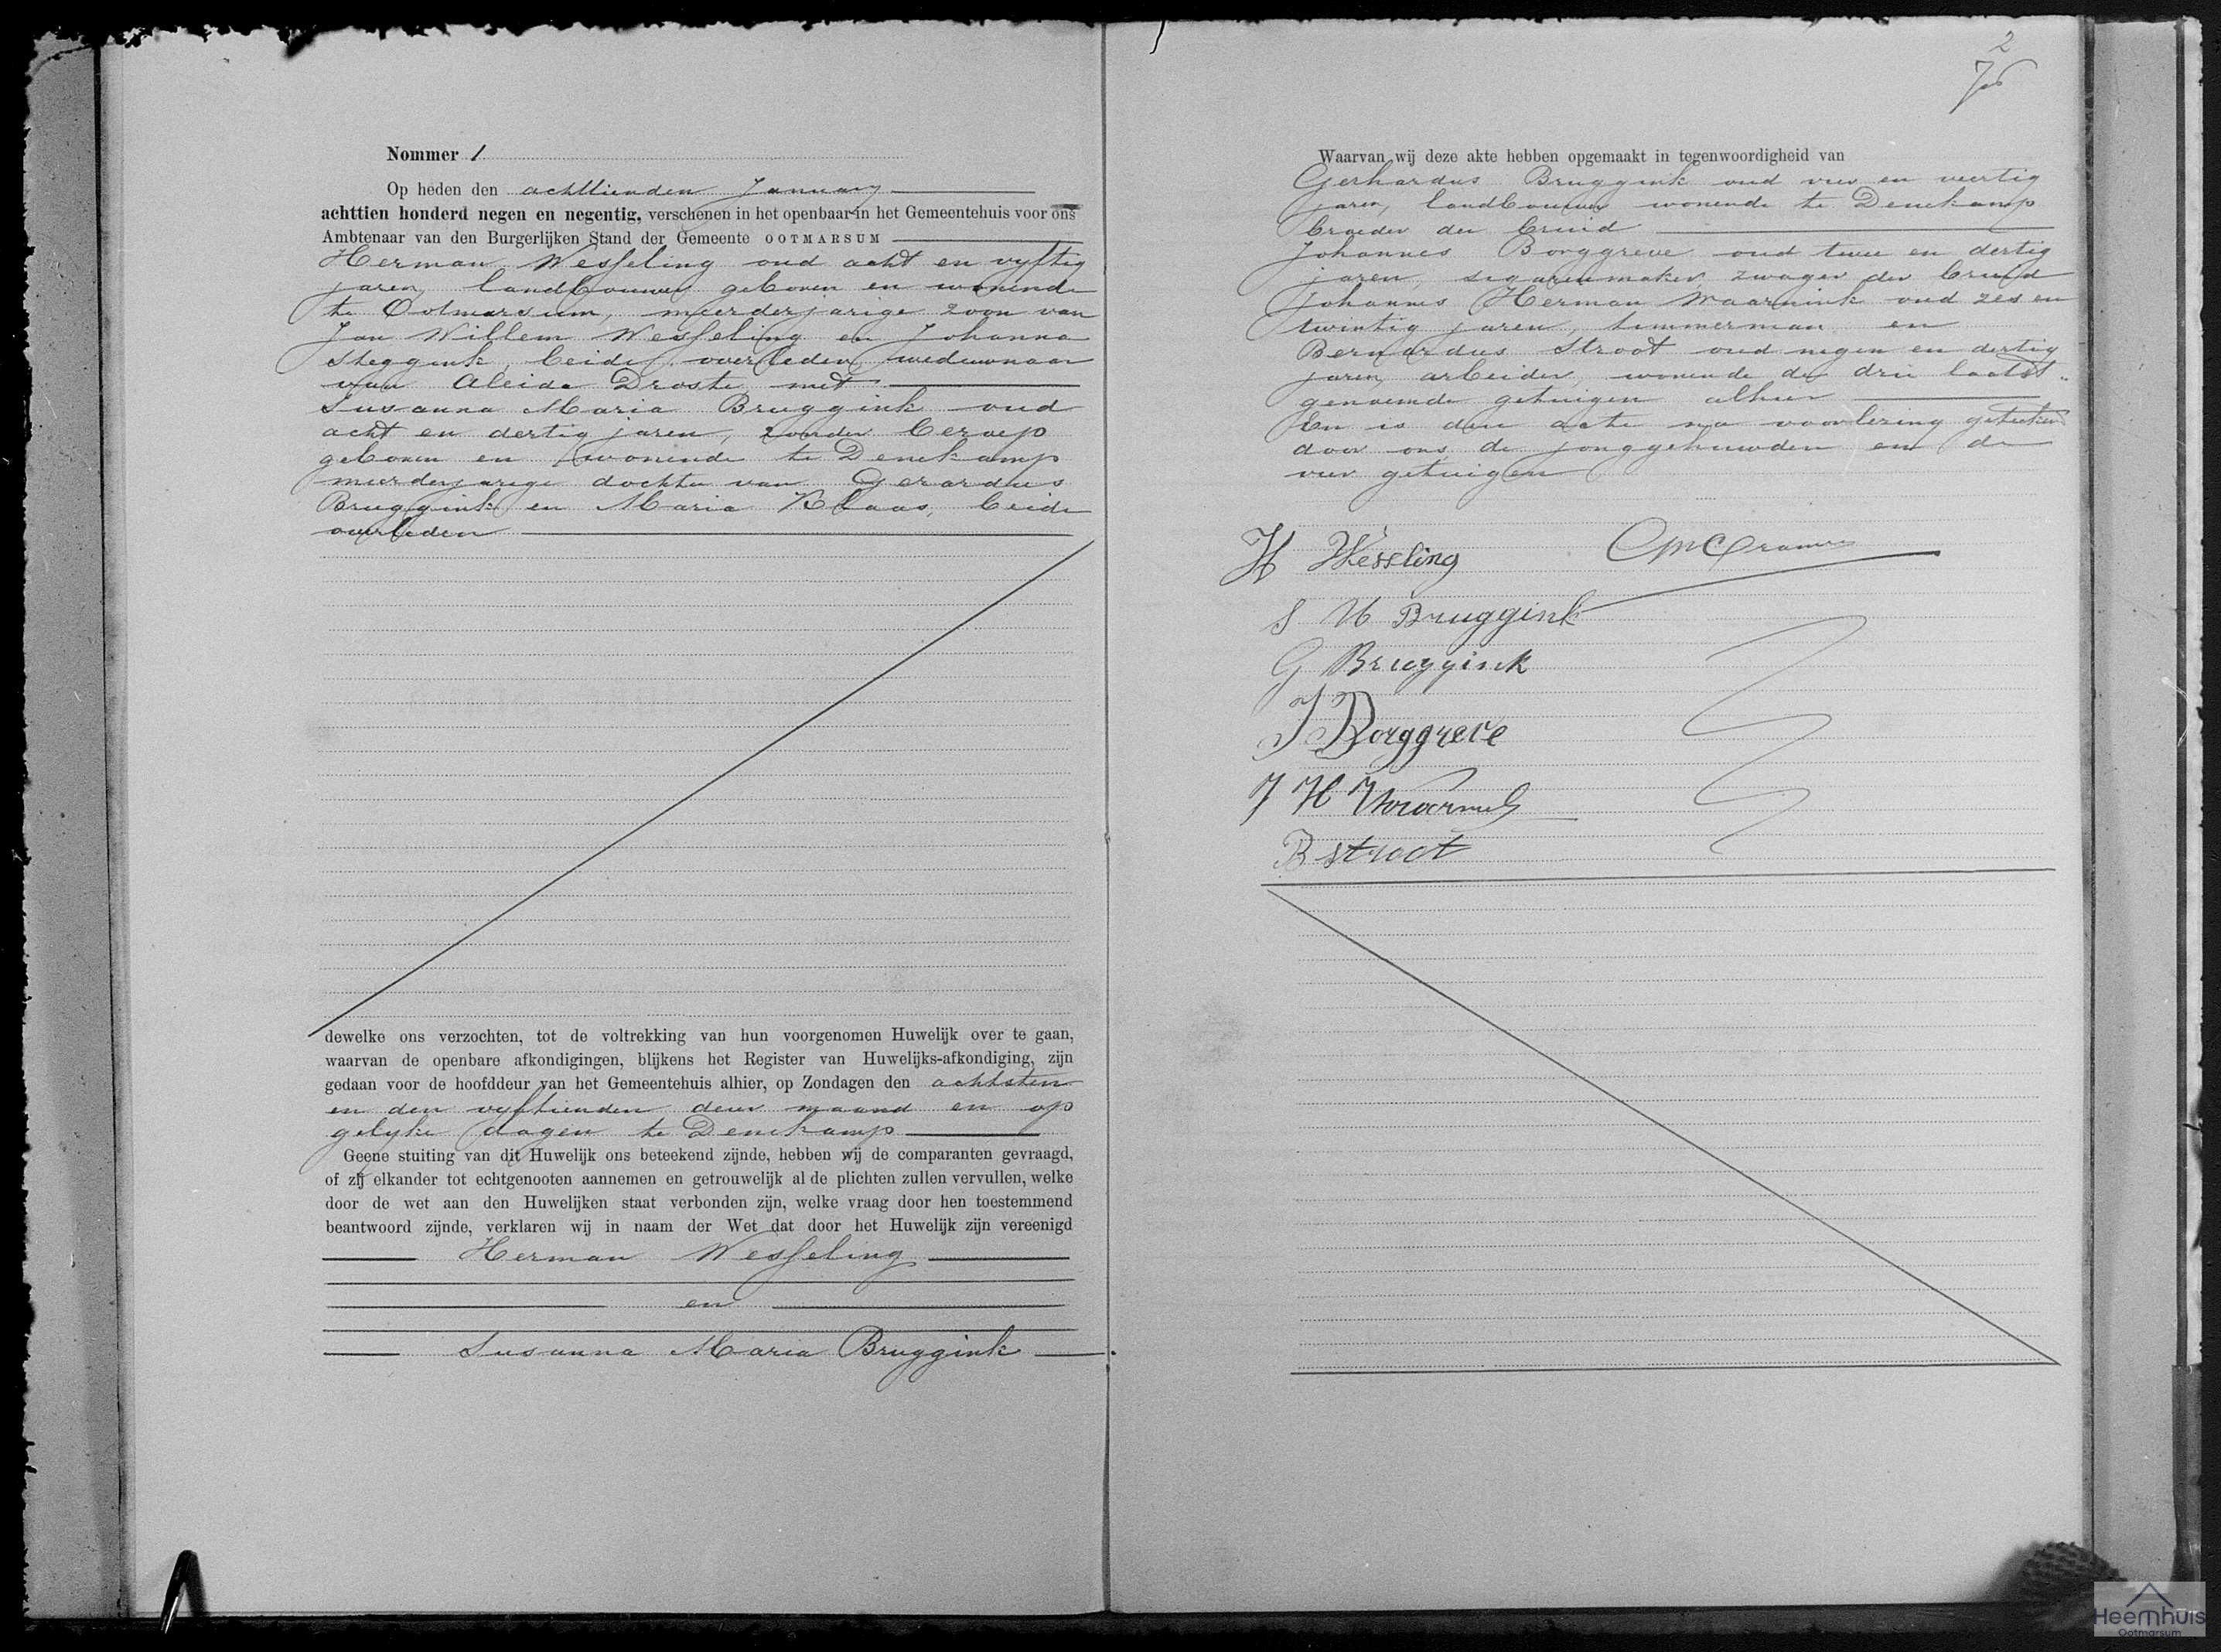 Nommer 1
Op heden den achttienden January
achttien honderd negen en negentig, verschenen in het openbaar in het Gemeentehuis voor ons
Ambtenaar van den Burgerlijken Stand der Gemeente OOTMARSUM
Herman Wesseling oud acht en vyftig
jaren, landbouwer geboren en wonende
te Ootmarsum, meerderjarige zoon van
Jan Willem Wesseling en Johanna
Steggink, beide overleden, weduwnaar
van Aleida Droste met
Susanna Maria Bruggink oud
acht en dertig jaren, zonder beroep
geboren en wonende te Denekamp
meerderjarige dochter van Gerardus
Bruggink en Maria Klaas, beide
overleden
dewelke ons verzochten, tot de voltrekking van hun voorgenomen Huwelijk over te gaan,
waarvan de openbare afkondigingen, blijkens het Register van Huwelijks-afkondiging, zijn
gedaan voor de hoofddeur van het Gemeentehuis alhier, op Zondagen den achtsten
en den vyftienden dezer maand en op
gelyke dagen te Denekamp
Geene stuiting van dit Huwelijk ons beteekend zijnde, hebben wij de comparanten gevraagd,
of zij elkander tot echtgenooten aannemen en getrouwelijk al de plichten zullen vervullen, welke
door de wet aan den Huwelijken staat verbonden zijn, welke vraag door hen toestemmend
beantwoord zijnde, verklaren wij in naam der Wet dat door het Huwelijk zijn vereenigd
Herman Wesseling
en
Susanna Maria Bruggink
2
Waarvan wij deze akte hebben opgemaakt in tegenwoordigheid van
Gerhardus Bruggink oud vier en veertig
jaren, landbouwer wonende te Denekamp
broeder der bruid
Johannes Borggreve oud twee en dertig
jaren, sigarenmaker, zwager der bruid
Johannes Herman Waarnink oud zes en
twintig jaren, timmerman en
Bernardus Stroot oud negen en dertig
jaren, arbeider, wonende de drie laatst
genoemde getuigen alhier
En is deze acte na voorlezing geteekend
door ons, de jonggehuwden en de
vier getuigen
H Wessling
Cramer
S M Bruggink
G Bruggink
J Borggreve
J H
B Stroot
Heemhuis
Ootmarsum